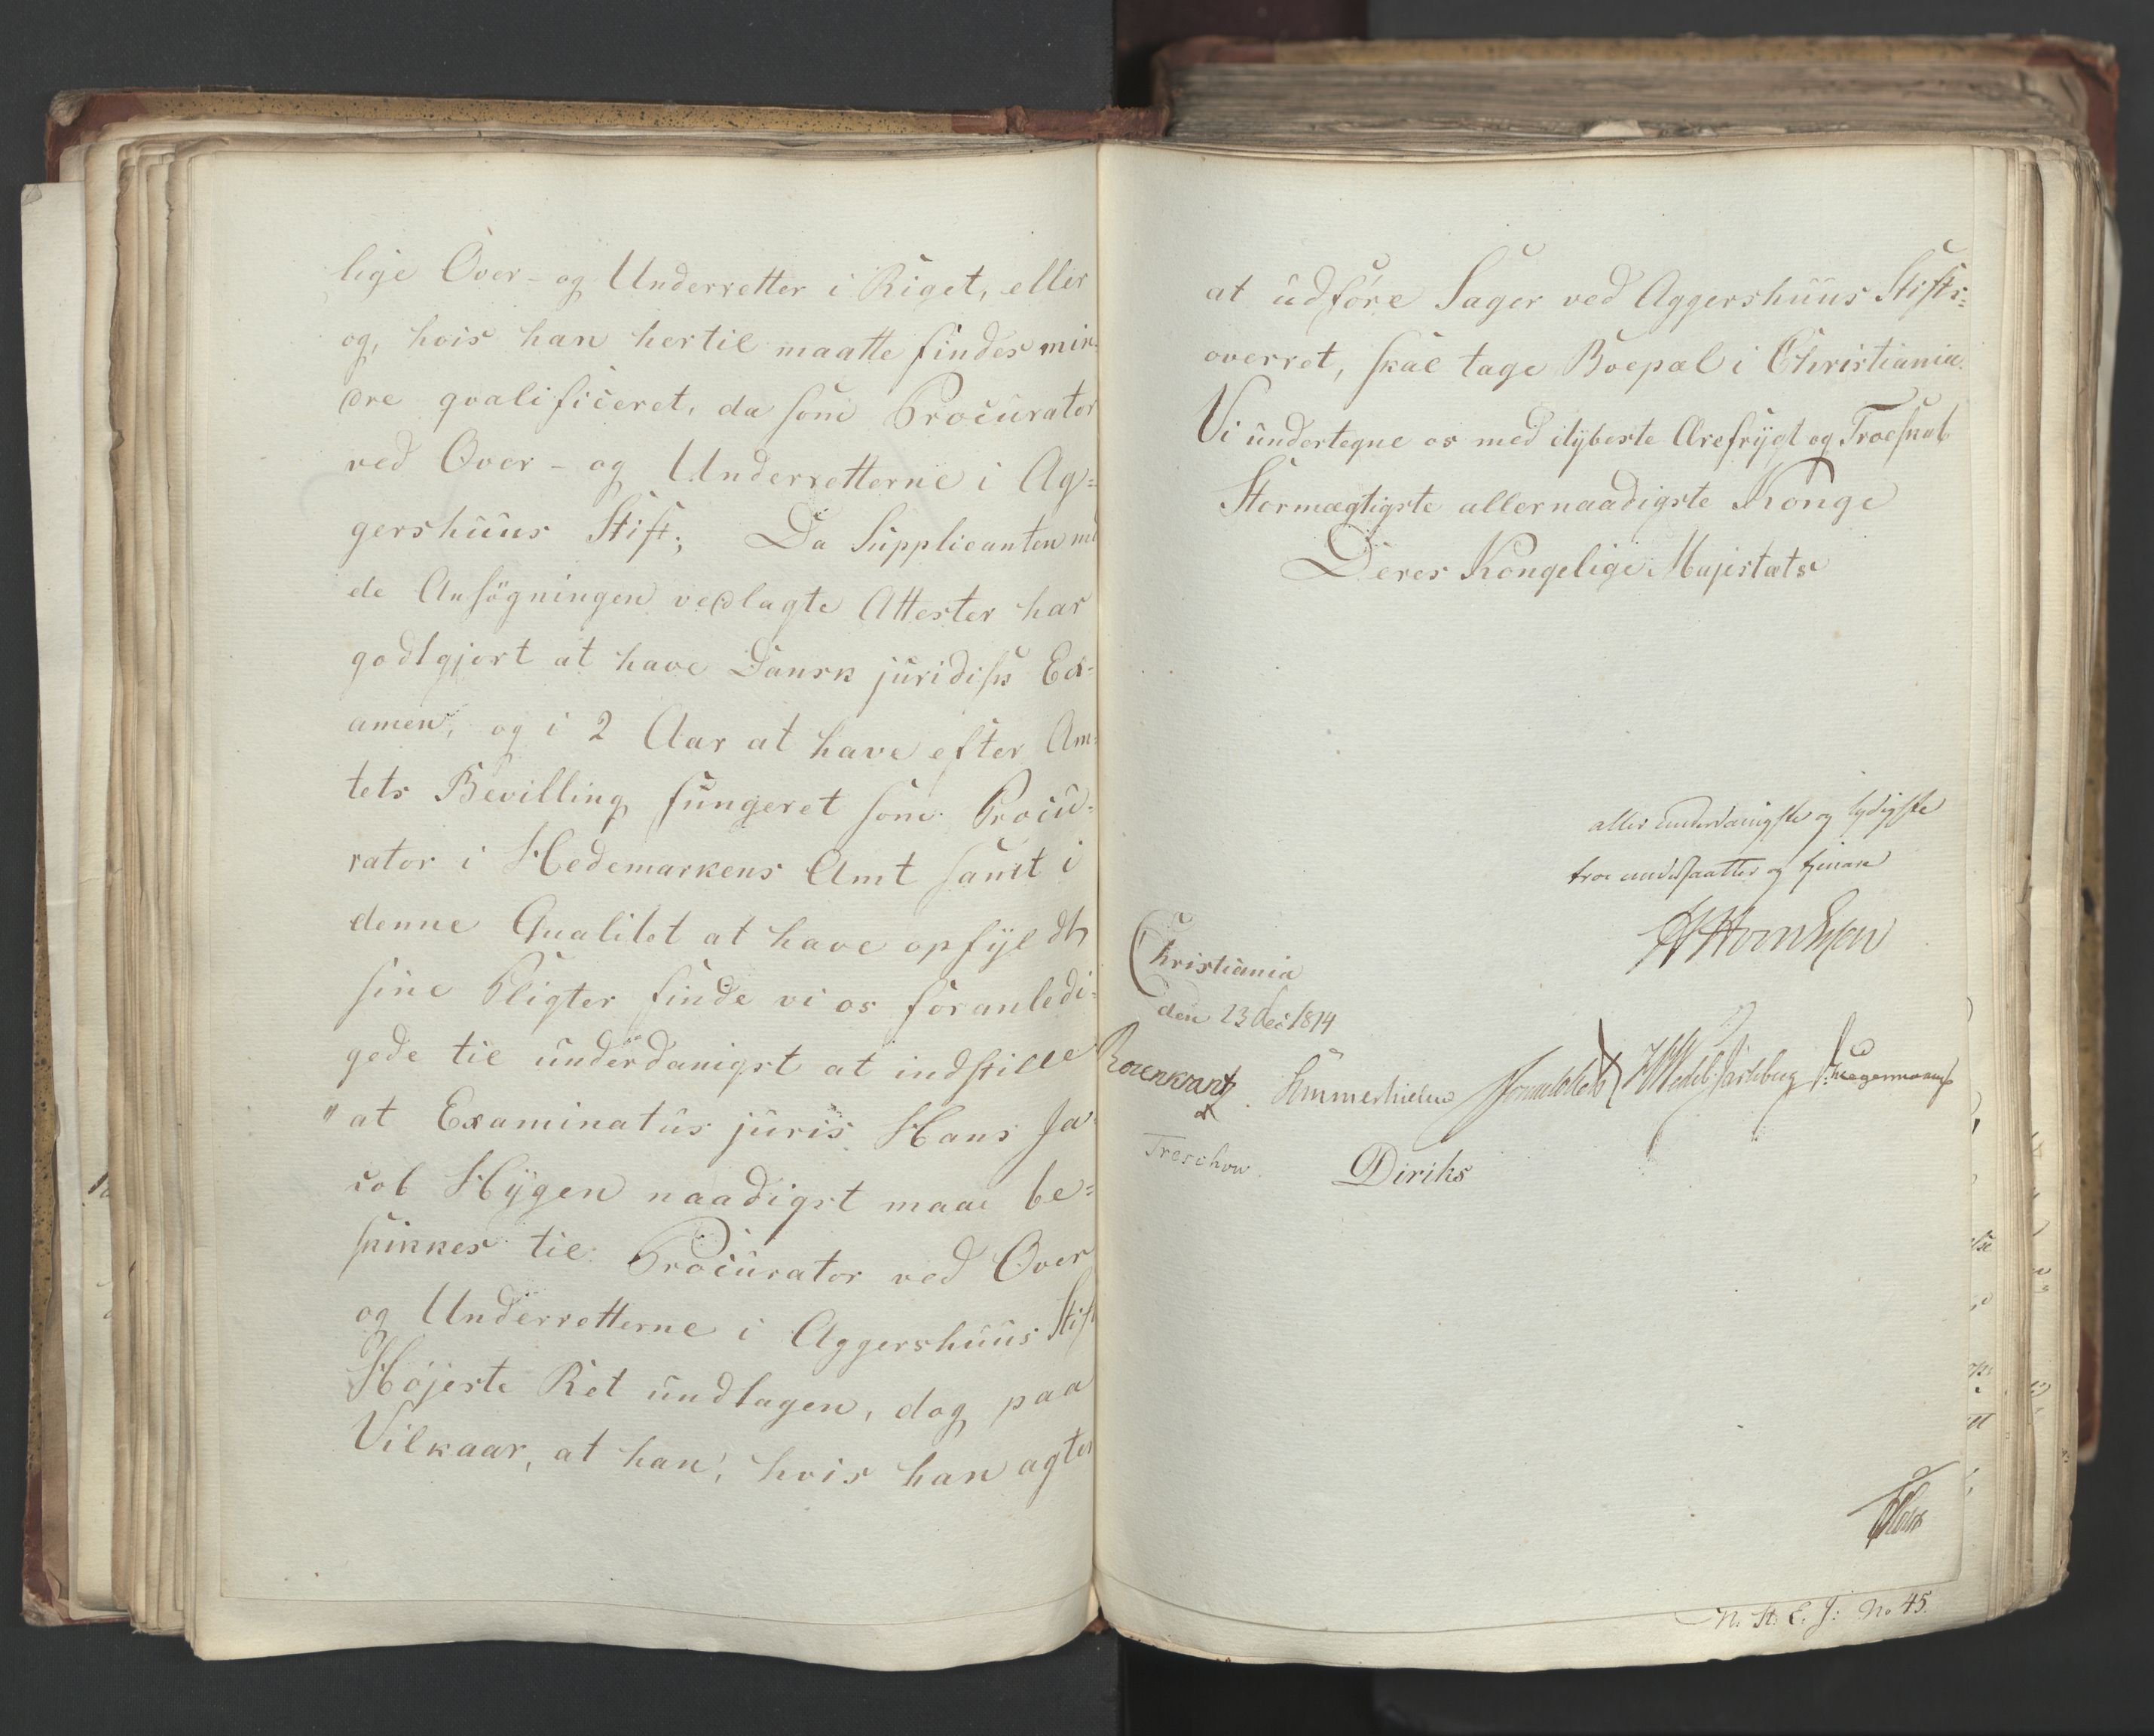 lige Over- og Underretter i Riget, eller
og, hvis han hertil maatte findes min-
dre qvalificeret, da som Procurator
ved Over- og Underretterne i Ag=
gershuus Stift; Da Supplicanten med
de Ansögningen vedlagte Attester har
godtgjort at have Dansk juridisk Ex-
amen, og i 2 Aar at have efter Am-
tets Bevilling fungeret som Procu-
rator i Hedemarkens Amt samt i
denne Qualitet at have opfyldt
sine Pligter finde vi os foranledi-
gede til underdanigst at indstille
" at Examinatus juris Hans Ja-
cob Hygen naadigst maae be=
skikkes til Procurator ved Over
og Underretterne i Aggershuus Stift
Höjeste Ret undtagen, dog paa
Vilkaar, at han, hvis han agter
at udføre Sager ved Aggershuus Stifts=
overret, skal tage Boepæl i Christiania.
Vi undertegne os med dybeste Ærefrygt og Troeskab
Stormægtigste allernaadigste Konge
Deres Kongelige Majestæts
aller underdanigste og lydigste
troe undersaatter og tjenere
Christiania
den 23 Dec 1814
Rosenkrantz. Sommerhielm HWedel Jarlsberg
Treschow. Diriks
N. St. E. J: No 45.